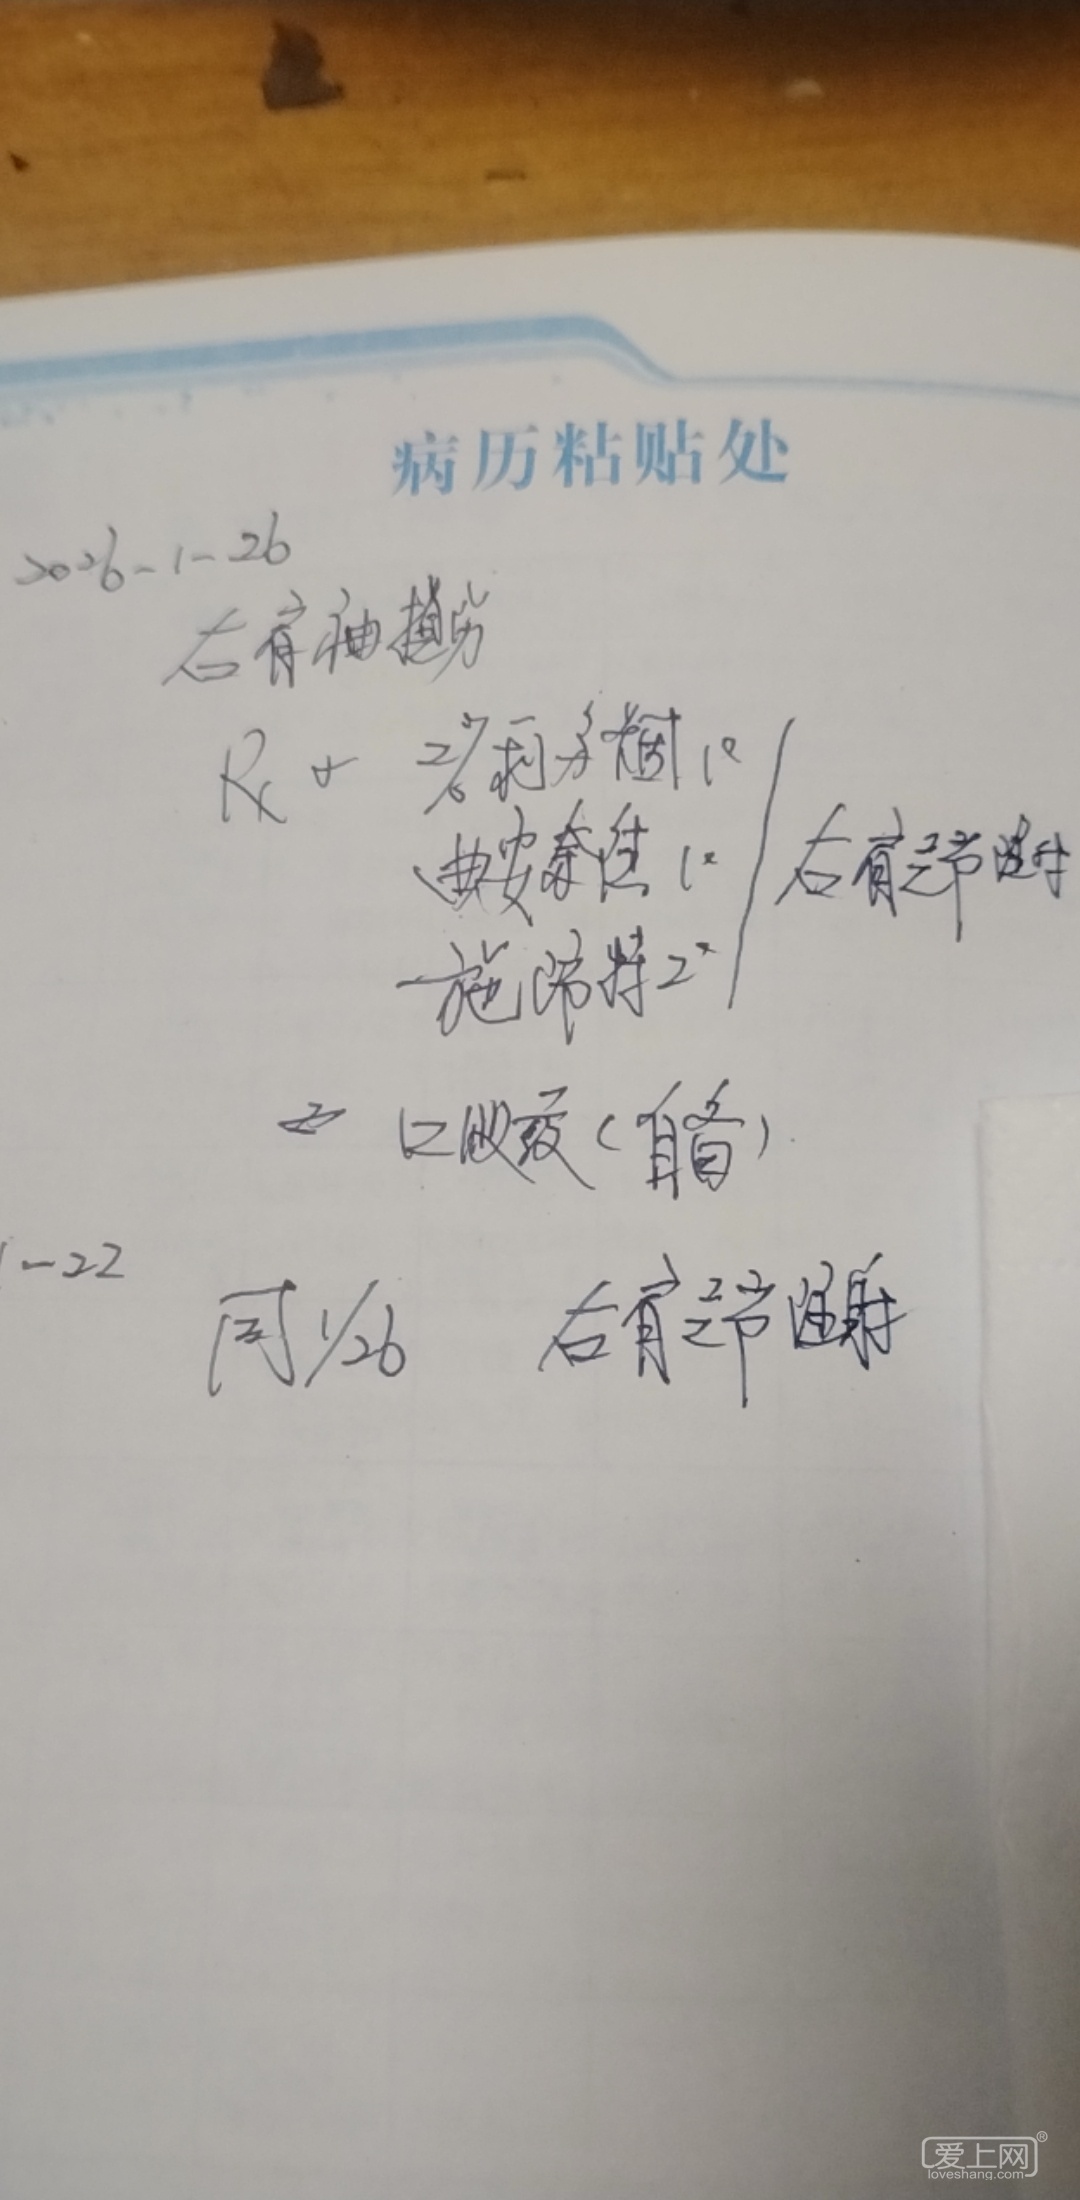 病历粘贴处
2026-1-26
右肩袖损伤
Rx ① 2%利多卡因 1支
曲安奈德 1支 右肩关节注射
施沛特 2支
② 口服药(自备)
1-22
同1/26 右肩关节注射
爱上网®
loveshang.com